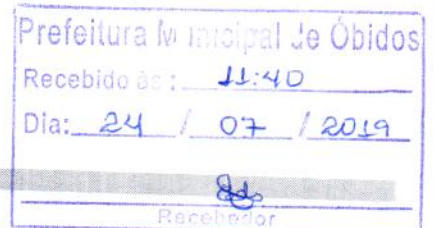 Prefeitura Municipal de Óbidos
Recebido às: 11:40
Dia: 24 / 07 / 2019
Recebedor